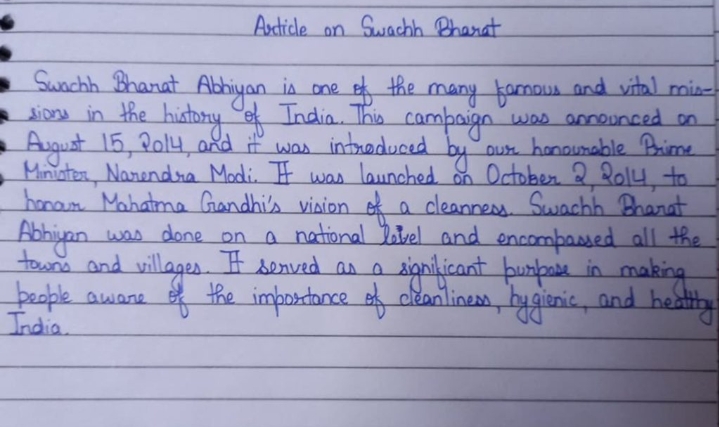 Article on Swachh Bharat
Swachh Bharat Abhiyan is one of the many famous and vital mis-
sions in the history of India. This campaign was announced on
August 15, 2014, and it was introduced by our honourable Prime
Minister, Narendra Modi. It was launched on October 2, 2014, to
honour Mahatma Gandhi's vision of a cleanness. Swachh Bharat
Abhiyan was done on a national level and encompassed all the
towns and villages. It served as a significant purpose in making
people aware of the importance of cleanliness, hygienic, and healthy
India.